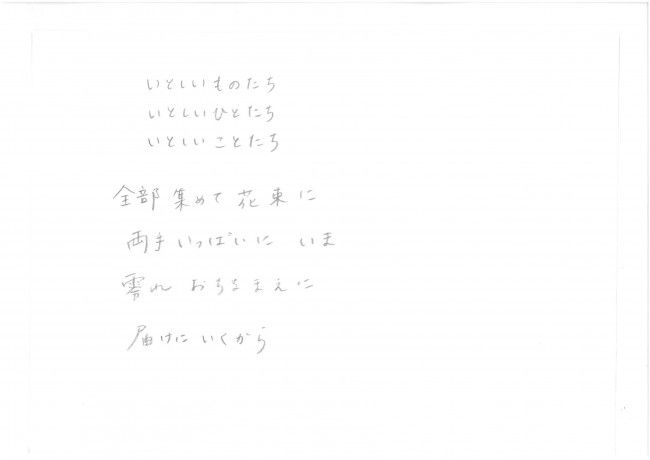 いとしいものたち
いとしいひとたち
いとしいことたち
全部集めて花束に
両手いっぱいに いま
零れ おちるまえに
届けにいくから